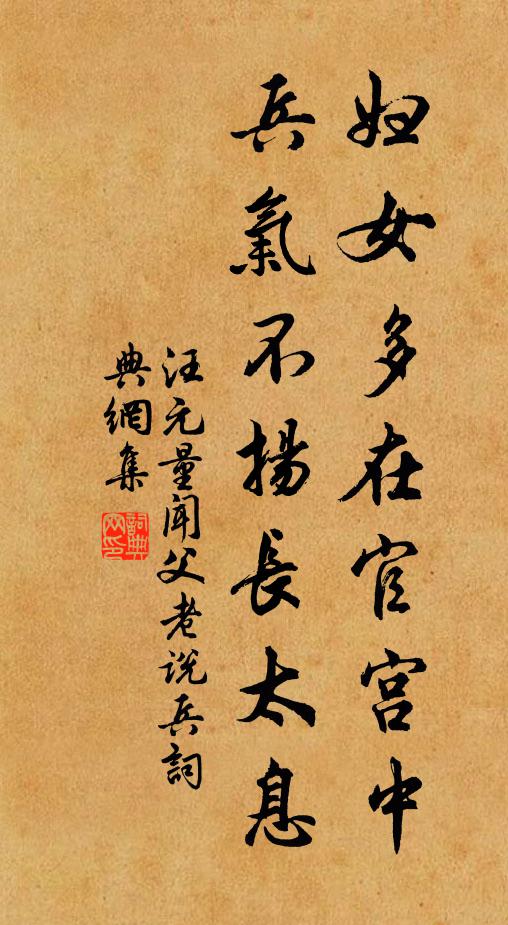 妇女多在官宫中
兵氣不揚長太息
汪元量聞父老说兵詞
典網集
詞典网印